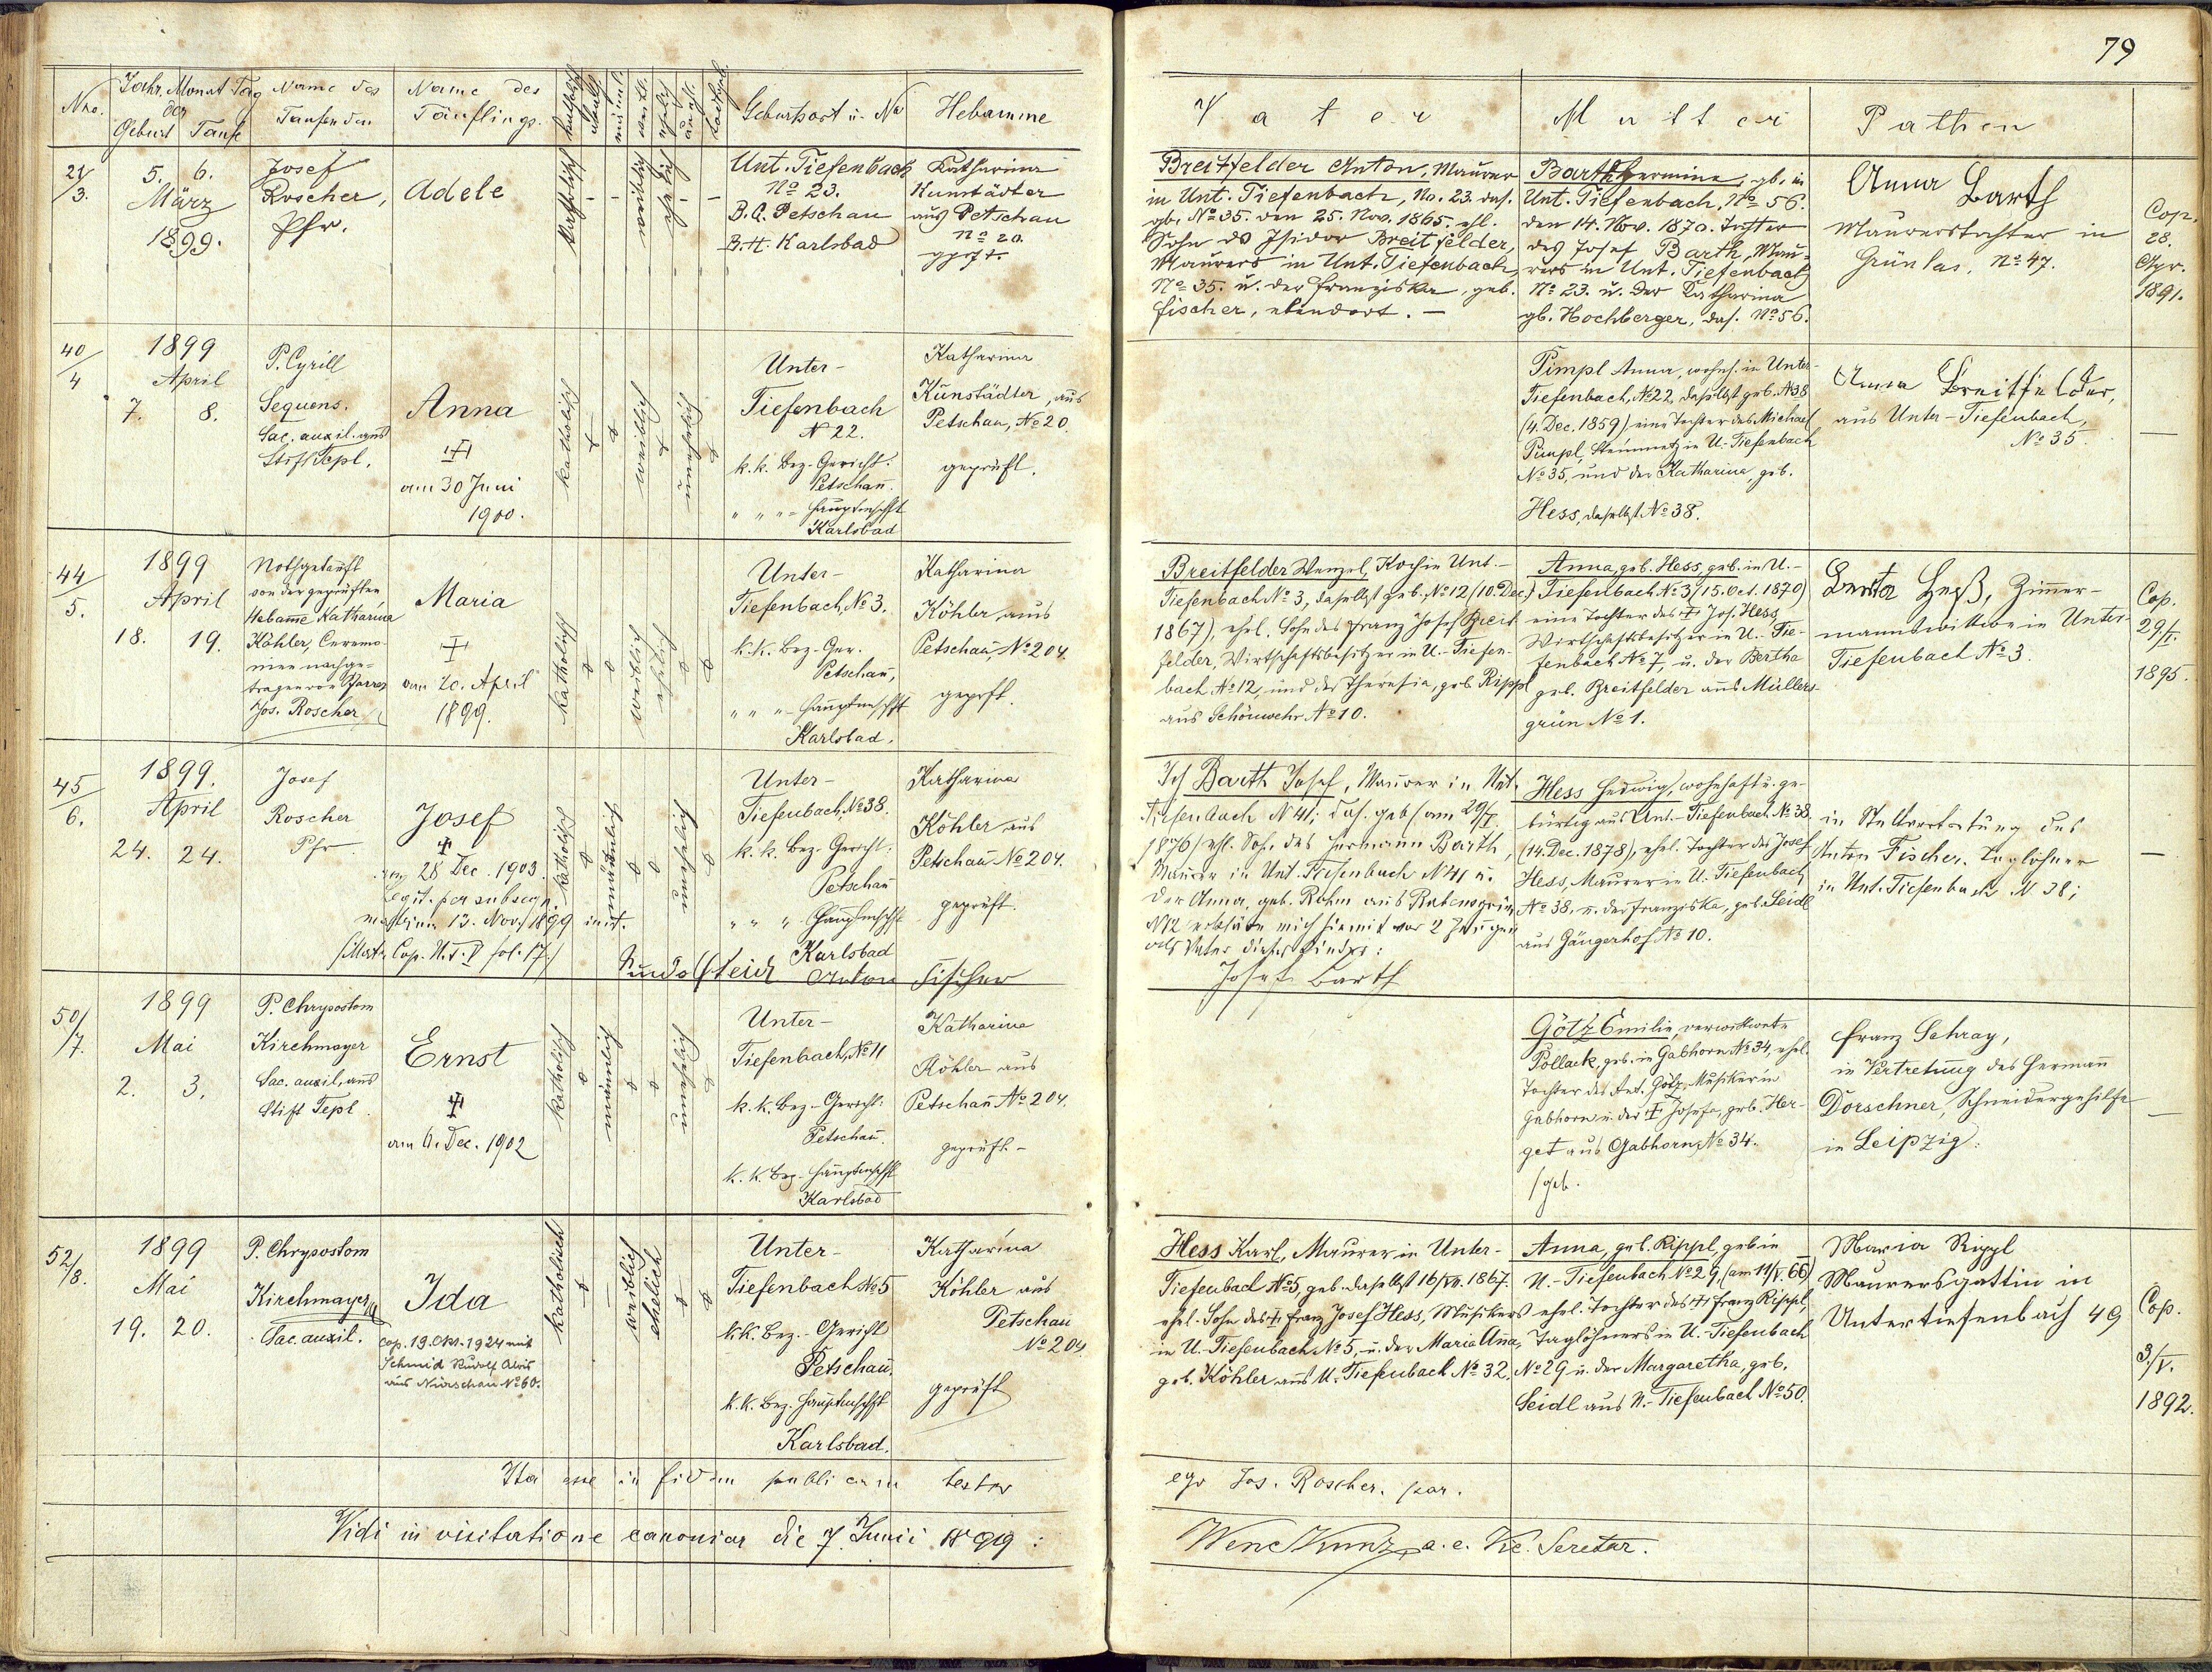 79
Nro.
Jahr, Monat Tag
der
Geburt Taufe
Name des
Taufenden
Name des
Täuflings.
katholisch
männl.
weibl.
ehelich
unehl.
Geburtsort u. No
Hebamme
Vater
Mutter
Pathen
21/3.
5. 6.
März
1899.
Josef
Roscher,
Pfr.
Adele
katholisch
weiblich
ehelich
Unt. Tiefenbach
No 23.
B.G. Petschau
B.H. Karlsbad
Katharina
Kunstädter
aus Petschau
No 20.
gprft.
Breitfelder Anton, Maurer
in Unt. Tiefenbach, No. 23. das.
gb. No 35. den 25. Nov. 1865. ehl.
Sohn ds Isidor Breitfelder,
Maurers in Unt. Tiefenbach,
No 35. u. der Franziska, geb.
Fischer, ebendort. —
Barth Hermine, gb. in
Unt. Tiefenbach, No 56.
den 14. Nov. 1870. Tochter
des Josef Barth, Mau-
rers in Unt. Tiefenbach
No 23. u. der Katharina
gb. Hochberger, das. No 56.
Anna Barth
Maurerstochter in
Grünlas. No 47.
Cop.
28.
Apr.
1891.
40/4
1899
April
7. 8.
P. Cyrill
Sequens.
Sac. auxil. aus
Stift Tepl.
Anna
am 30 Juni
1900.
katholisch
weiblich
unehelich
Unter-
Tiefenbach
N 22.
k. k. Bez.-Gericht:
Petschau.
" " " Hauptmschft
Karlsbad
Katharina
Kunstädter, aus
Petschau, No 20.
geprüft.
Pimpl Anna, wohnh. in Unter-
Tiefenbach, No 22, daselbst geb. No 38
(4. Dec. 1859), eine Tochter des Michael
Pimpl, Steinmetz in U.-Tiefenbach
No 35, und der Katharina, geb.
Hess, daselbst No 38.
Anna Breitfelder,
aus Unter-Tiefenbach,
No 35.
—
44/5.
1899
April
18. 19.
Nothgetauft
von der geprüften
Hebame Katharina
Köhler, Ceremo-
nien nachge-
tragen von Pfarrer
Jos. Roscher
Maria
am 20. April
1899.
katholisch
weiblich
ehelich
Unter-
Tiefenbach, No 3.
k.k. Bez.-Ger.
Petschau,
" " " Hauptmschft
Karlsbad.
Katharina
Köhler aus
Petschau, No 204.
geprft.
Breitfelder Wenzel, Koch in Unt.-
Tiefenbach No 3, daselbst geb. No 12 (10. Dec.
1867), ehel. Sohn des Franz Josef Breit-
felder, Wirtschaftsbesitzer in U.-Tiefen-
bach No 12, und der Theresia, geb. Rippl
aus Schönwehr No 10.
Anna, geb. Hess, geb. in U.-
Tiefenbach No 3 (15. Oct. 1870)
eine Tochter des Jos. Hess,
Wirtschaftsbesitzer in U.-Tie-
fenbach No 7, u. der Bertha
geb. Breitfelder aus Müllers-
grün No 1.
Berta Heß, Zimmer-
mannswitwe in Unter-
Tiefenbach No 3.
Cop.
29/I.
1895.
45/6.
1899.
April
24. 24.
Josef
Roscher
Pfr
Josef
am 28 Dec. 1903.
Legit. per subsequ.
13. Nov. 1899 init.
Matr. Cop. U.T. V fol. 17.
katholisch
männlich
unehelich
Unter-
Tiefenbach, No 38.
k. k. Bez. Gericht:
Petschau
" " " Hauptmschft
Karlsbad
Katharina
Köhler aus
Petschau No 204.
geprüft.
Anton Fischer
Ich Barth Josef, Maurer in Unt.
Tiefenbach N 41, das. geb. am 29/
1876, ehl. Sohn des Hermann Barth,
Maurer in Unt. Tiefenbach N 41 u.
der Anna, geb. Rohm aus Rabensgrün
N 12 erkläre mich hiemit vor 2 Zeugen
als Vater dieses Kindes:
Josef Barth
Hess Hedwig, wohnhaft u. ge-
bürtig aus Unt.-Tiefenbach No 38.
(14. Dec. 1878), ehel. Tochter des Josef
Hess, Maurer in U. Tiefenbach
No 38, u. der Franziska, geb. Seidl
aus Gängerhof No 10.
in Stellvertretung des
Anton Fischer, Taglöhner
in Unt. Tiefenbach N 38;
—
50/7.
1899
Mai
2. 3.
P. Chrysostom
Kirchmayer
Sac. auxil. aus
Stift Tepl
Ernst
am 6. Dec. 1902
katholisch
männlich
unehelich
Unter-
Tiefenbach, No 11
k. k. Bez.-Gericht:
Petschau.
k. k. Bez. Hauptmschft
Karlsbad
Katharina
Köhler aus
Petschau No 204.
geprüft. -
Götz Emilie, verwittwete
Pollack, geb. in Gabhorn No 34, ehel.
Tochter des Ant. Götz, Musiker in
Gabhorn u. der Josefa, geb. Her-
get aus Gabhorn, No 34.
Franz Schray,
in Vertretung des Hermann
Dörschner, Schneidergehilfe
in Leipzig.
—
52/8.
1899
Mai
19. 20.
P. Chrysostom
Kirchmayer
Sac. auxil.
Ida
Cop. 19. Okt. 1924 mit
Schmid Rudolf Alois
aus Nürschau No 60.
katholisch
weiblich
ehelich
Unter-
Tiefenbach No 5
k.k. Bez.-Gericht
Petschau.
k.k. Bez. Hauptmschft
Karlsbad.
Katharina
Köhler aus
Petschau
No 204
geprüft
Hess Karl, Maurer in Unter-
Tiefenbach No 5, geb. daselbst 16/VII. 1867.
ehel. Sohn des Franz Josef Hess, Musikers
in U. Tiefenbach No 5, u. der Maria Anna,
geb. Köhler aus U. Tiefenbach No 32.
Anna, geb. Rippl, geb in
U.-Tiefenbach No 29, (am 11/V. 66)
ehel. Tochter des Franz Rippl,
Taglöhners in U.-Tiefenbach
No 29 u. der Margaretha, geb.
Seidl aus U.-Tiefenbach No 50.
Maria Rippl
Maurersgattin in
Untertiefenbach 49
Cop.
3./V.
1892.
Ita esse in fidem publicam testor
ego Jos. Roscher. par.
Vidi in visitatione canonica die 7. Junii 1899: